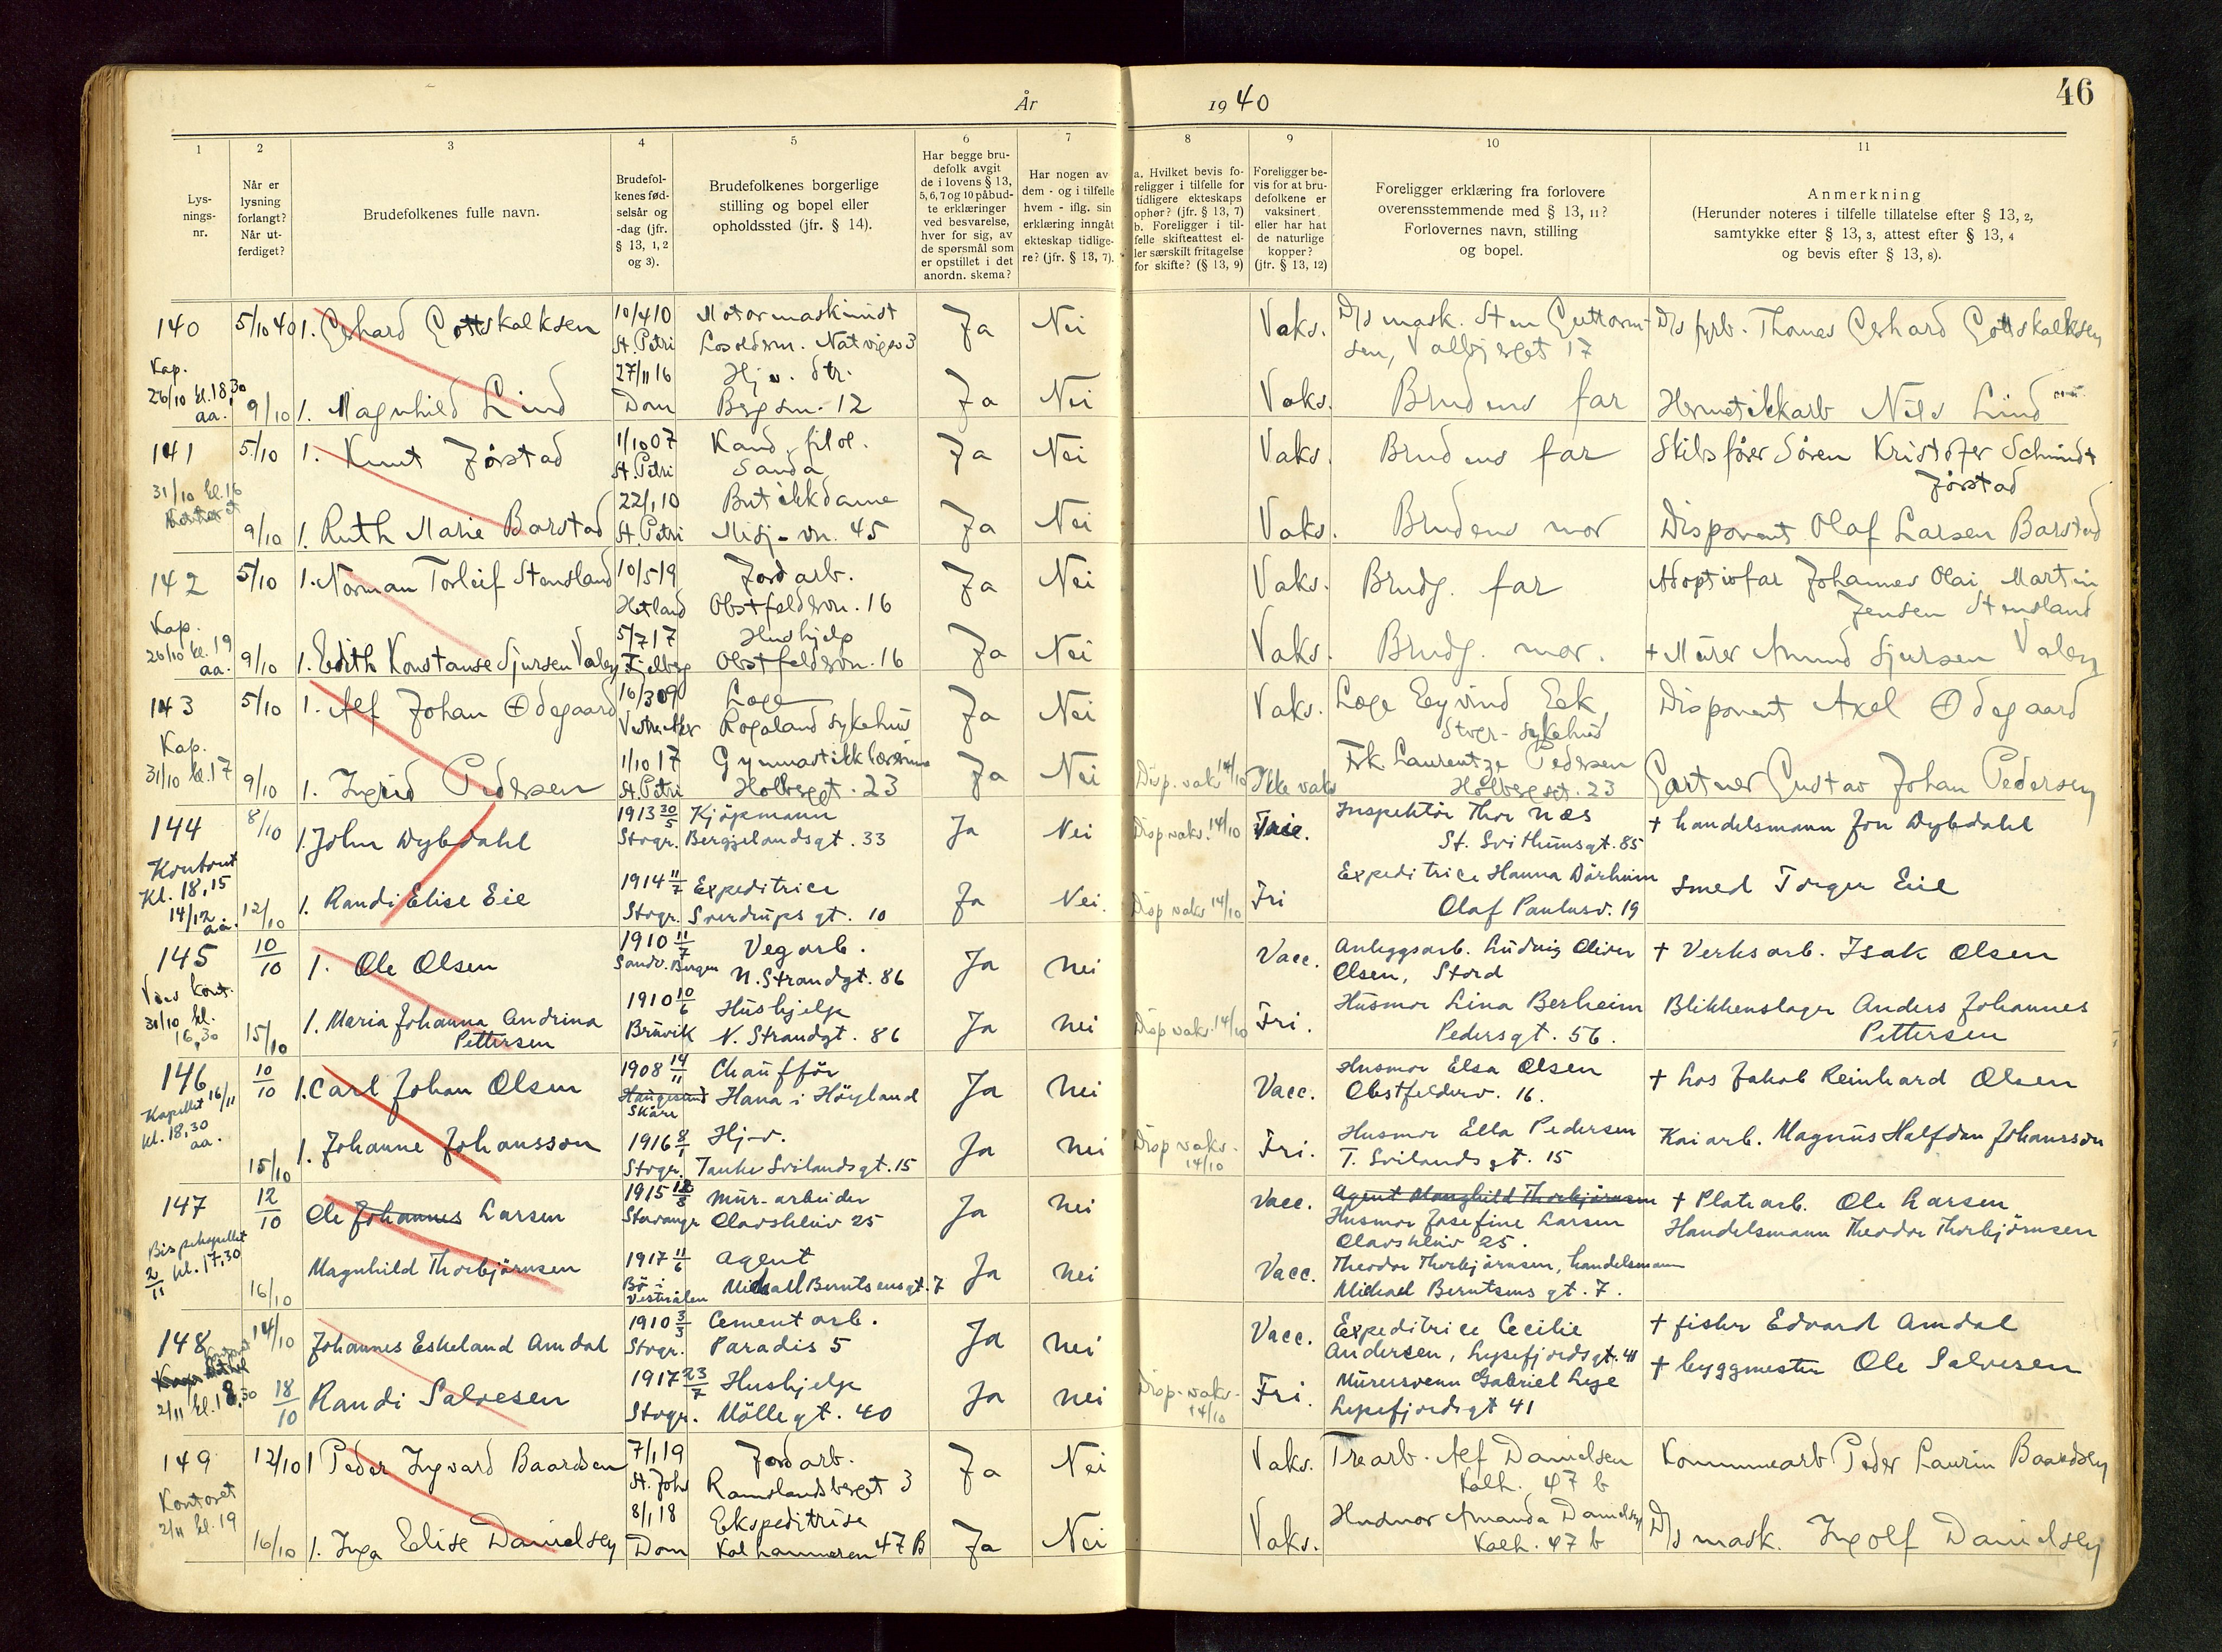 År 1940
46
1 2 3 4 5 6 7 8 9 10 11
Lys-
nings-
nr.
Når er
lysning
forlangt?
Når ut-
ferdiget?
Brudefolkenes fulle navn.
Brudefol-
kenes fød-
selsår og
-dag (jfr.
§ 13, 1, 2
og 3).
Brudefolkenes borgerlige
stilling og bopel eller
opholdssted (jfr. § 14).
Har begge bru-
defolk avgit
de i lovens § 13,
5, 6, 7 og 10 påbud-
te erklæringer
ved besvarelse,
hver for sig, av
de spørsmål som
er opstillet i det
anordn. skema?
Har nogen av
dem - og i tilfelle
hvem - iflg. sin
erklæring inngått
ekteskap tidlige-
re? (jfr. § 13, 7).
a. Hvilket bevis fo-
religger i tilfelle for
tidligere ekteskaps
ophør? (jfr. § 13, 7)
b. Foreligger i til-
felle skifteattest el-
ler særskilt fritagelse
for skifte? (§ 13, 9)
Foreligger be-
vis for at bru-
defolkene er
vaksinert
eller har hat
de naturlige
kopper?
(jfr. § 13, 12)
Foreligger erklæring fra forlovere
overensstemmende med § 13, 11?
Forlovernes navn, stilling
og bopel.
Anmerkning
(Herunder noteres i tilfelle tillatelse efter § 13, 2,
samtykke efter § 13, 3, attest efter § 13, 4
og bevis efter § 13, 8).
140 5/10 40 1. Gerhard Gottskalksen 10/4 10 Motormaskinist Ja Nei Vaks. D/s mask. Sten Guttorm- D/s fyrb. Thomas Gerhard Gottskalksen
St. Petri Natvigsv 3 sen, Valbjerget 17
Kap. 27/11 16 Hj. v. dtr.
26/10 kl. 18,30 aa. 9/10 1. Magnhild Lind Dom Bergsm. 12 Ja Nei Vaks. Brudens far Hermetikkarb Nils Lind
141 5/10 1. Knut Jørstad 1/10 07 Kand. filol. Ja Nei Vaks. Brudens far Skibsfører Søren Kristofer Schmidt
St. Petri Sanda Jørstad
31/10 kl. 16 22/1 10 Butikkdame
9/10 1. Ruth Marie Barstad St. Petri Misj-vn. 45 Ja Nei Vaks. Brudens mor Disponent Olaf Larsen Barstad
142 5/10 1. Norman Torleif Stensland 10/5 19 Jordarb. Ja Nei Vaks. Brudg. far Adoptivfar Johannes Olai Martin
Hetland Obstfeldersvn. 16 Jensen Stensland
Kap. 5/7 17 Hushjelp
26/10 kl. 19 aa. 9/10 1. Edith Konstanse Sjursen Valen Fjelberg Obstfeldersvn. 16 Ja Nei Vaks. Brudg. mor. + Murer Amund Sjursen Valen
143 5/10 1. Alf Johan Ødegaard 16/3 09 Lege Ja Nei Vaks. Lege Eyvind Eek, Disponent Axel Ødegaard
Vestre Aker Rogaland sykehus Stvgr- sykehus
Kap. 1/10 17 Gymnastikklærerinne Frk. Laurentze Pedersen
31/10 kl. 17 9/10 1. Ingrid Pedersen St. Petri Holbergsgt. 23 Ja Nei Disp. vaks 14/10 Ikke vaks Holbergsgt. 23 Gartner Gustav Johan Pedersen
144 8/10 1. John Dybdahl 1913 30/5 Kjøpmann Ja Nei Disp vaks. 14/10 Inspektør Thor Næs + handelsmann Jon Dybdahl
Stvgr. Bergjelandsgt. 33 St. Svithunsgt. 85
Kontoret
Kl. 18,15 1914 11/7 Expeditrice Expeditrice Hanna Dørheim
14/12 aa. 12/10 1. Randi Elise Eie Stvgr. Sverdrups gt. 10 Ja Nei. Disp vaks 14/10 Fri Olaf Paulusv. 19 Smed Torger Eie
145 10/10 1. Ole Olsen 1910 11/7 Vegarb. Ja Nei Vacc. Anleggsarb. Ludvig Oliver + Verksarb. Isak Olsen
Sandv. Bergen N. Strandgt. 86 Olsen, Stord
Vårs kont. 1910 10/6 Hushjelp Husmor Lina Berheim
31/10 kl. 16,30 15/10 1. Maria Johanna Andrina Brüvik N. Strandgt. 86 Ja Nei Disp vaks. 14/10 Fri. Pedersgt. 56. Blikkenslager Anders Johannes
Pettersen Pettersen
146 10/10 1. Carl Johan Olsen 1908 14/11 Chauffør Ja Nei Vacc. Husmor Elsa Olsen + Los Jakob Reinhard Olsen
Haugesund Skåre Hana i Høyland Obstfelderv. 16.
Kapellet 16/11
kl. 18,30 aa. 15/10 1. Johanne Johansson 1916 8/1 Hj-v. Ja Nei Disp vaks- 14/10 Fri. Husmor Ella Pedersen Kaiarb. Magnus Halfdan Johansson
Stvgr. Tanke Svilandsgt. 15 T. Svilandsgt. 15
147 12/10 Ole Johannes Larsen 1915 12/8 Mur-arbeider Ja Nei Vacc. Agent Manghild Thorbjørnsen + Platearb. Ole Larsen
Stavanger Olavskleiv 25 Husmor Josefine Larsen Handelsmann Theodor Thorbjørnsen
Olavskleiv 25.
Bispekapellet
2/11 kl. 17,30 16/10 Magnhild Thorbjørnsen 1917 11/6 Agent Ja Nei Vacc. Theodor Thorbjørnsen, handelsmann
Bø i Vesterålen Michael Berntsensgt. 7 Michael Berntsens gt. 7.
148 14/10 Johannes Eskeland Amdal 1910 3/3 Cementarb. Ja Nei Vacc. Expeditrice Cecilie + fisker Edvard Amdal
Kontoret Stvgr. Paradis 5 Andersen, Lysefjordsgt. 41
2/11 kl. 18,30 18/10 Randi Salvesen 1917 23/7 Hushjelp Ja Nei Disp-vaks- 14/10 Fri. Murersvenn Gabriel Lyse + byggmester Ole Salvesen
Stvgr. Møllegt. 40 Lysefjordsgt 41
149 12/10 1 Peder Ingvard Baardsen 7/1 19 Jordarb. Ja Nei Vaks. Trearb. Alf Danielsen Kommunearb Peder Laurin Baardsen
St. Johs Ramslandsberget 3 Kalh. 47 b
Kontoret 8/1 18 Ekspeditrise Husmor Amanda Danielsen
2/11 kl. 19 16/10 1. Inga Elise Danielsen Dom Kalhammeren 47 B Ja Nei Vaks. Kalh. 47 b D/s mask. Ingolf Danielsen